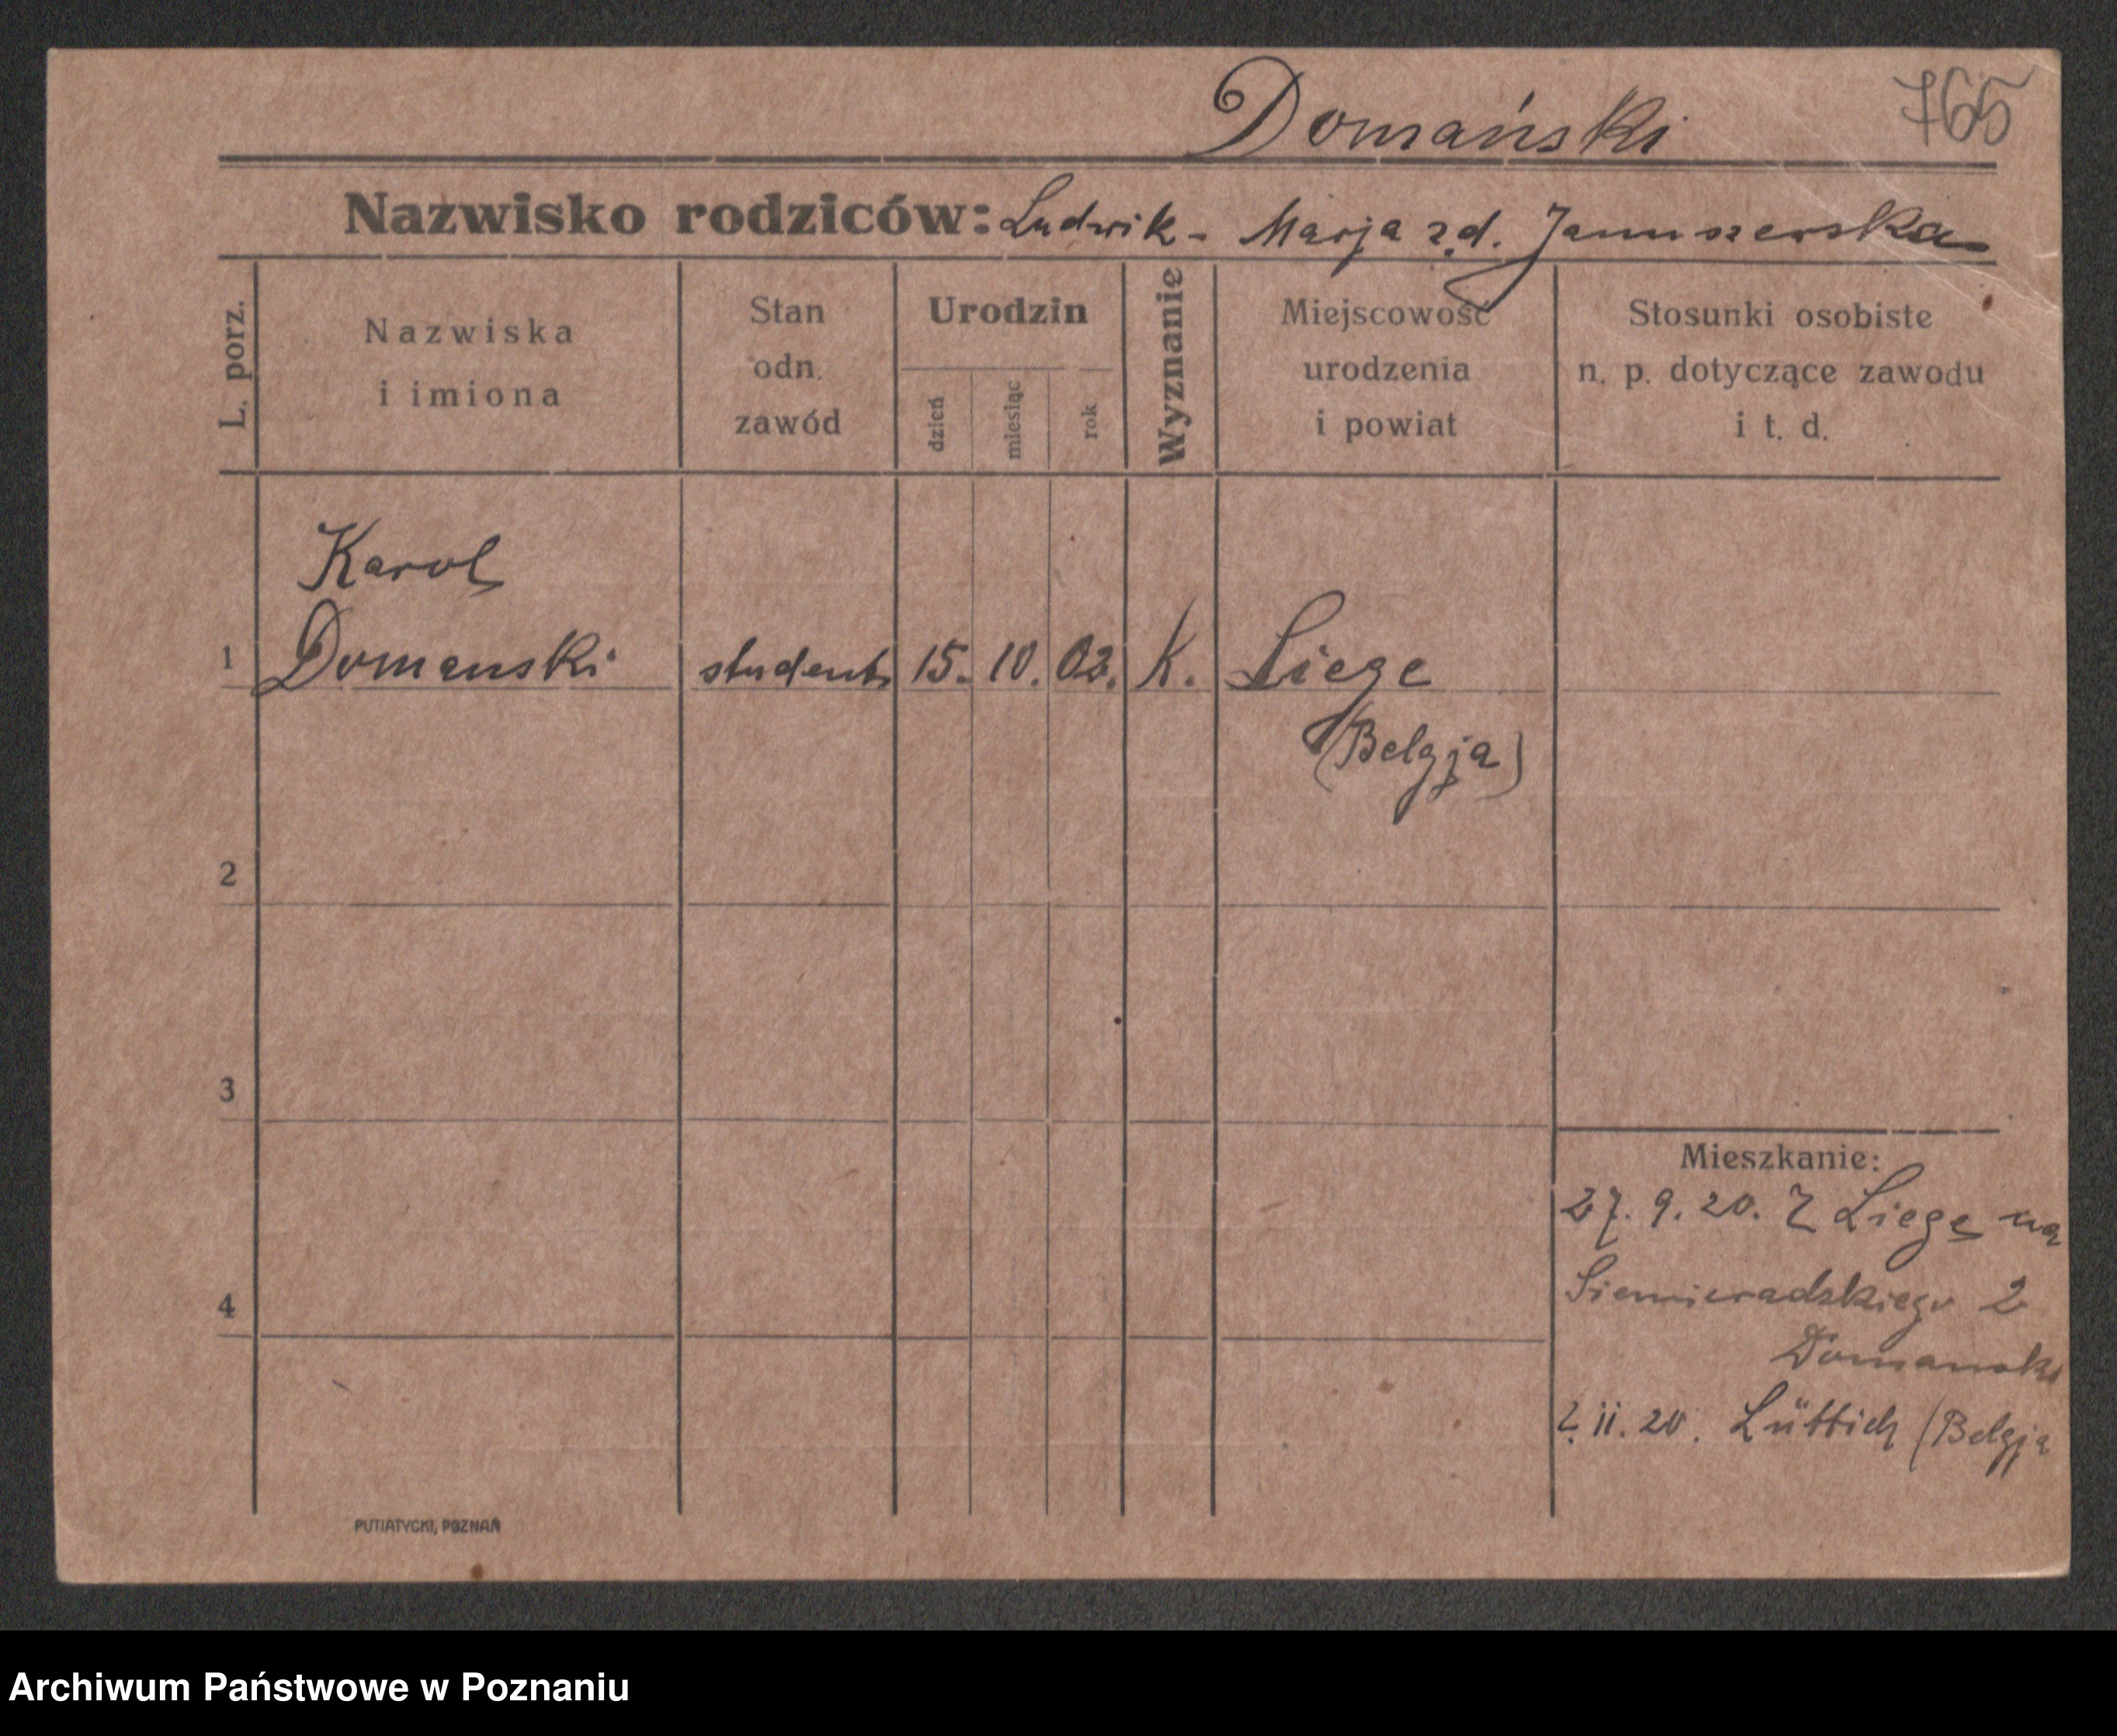 Domański
765
Nazwisko rodziców: Ludwik - Marja z d. Januszewska
L. porz.
Nazwiska
i imiona
Stan
odn.
zawód
Urodzin
dzień
miesiąc
rok
Wyznanie
Miejscowość
urodzenia
i powiat
Stosunki osobiste
n. p. dotyczące zawodu
i t. d.
Karol
1 Domanski student 15. 10. 02. K. Liege
(Belgja)
2
3
4
Mieszkanie:
27. 9. 20. Z Liege na
Siemieradzkiego 2
Domanski
2. 11. 20. Lüttich (Belgja
PUTIATYCKI, POZNAŃ
Archiwum Państwowe w Poznaniu